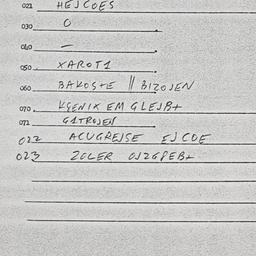 021 HEJCOES
030 0
040 —
050 XAROT1
060 BAKOS+E || BIZOJEN
070 KSENIX EM GLEJB+
071 G1TROJEN
022 ACUGREJSE EJCOE
023 ZOLER